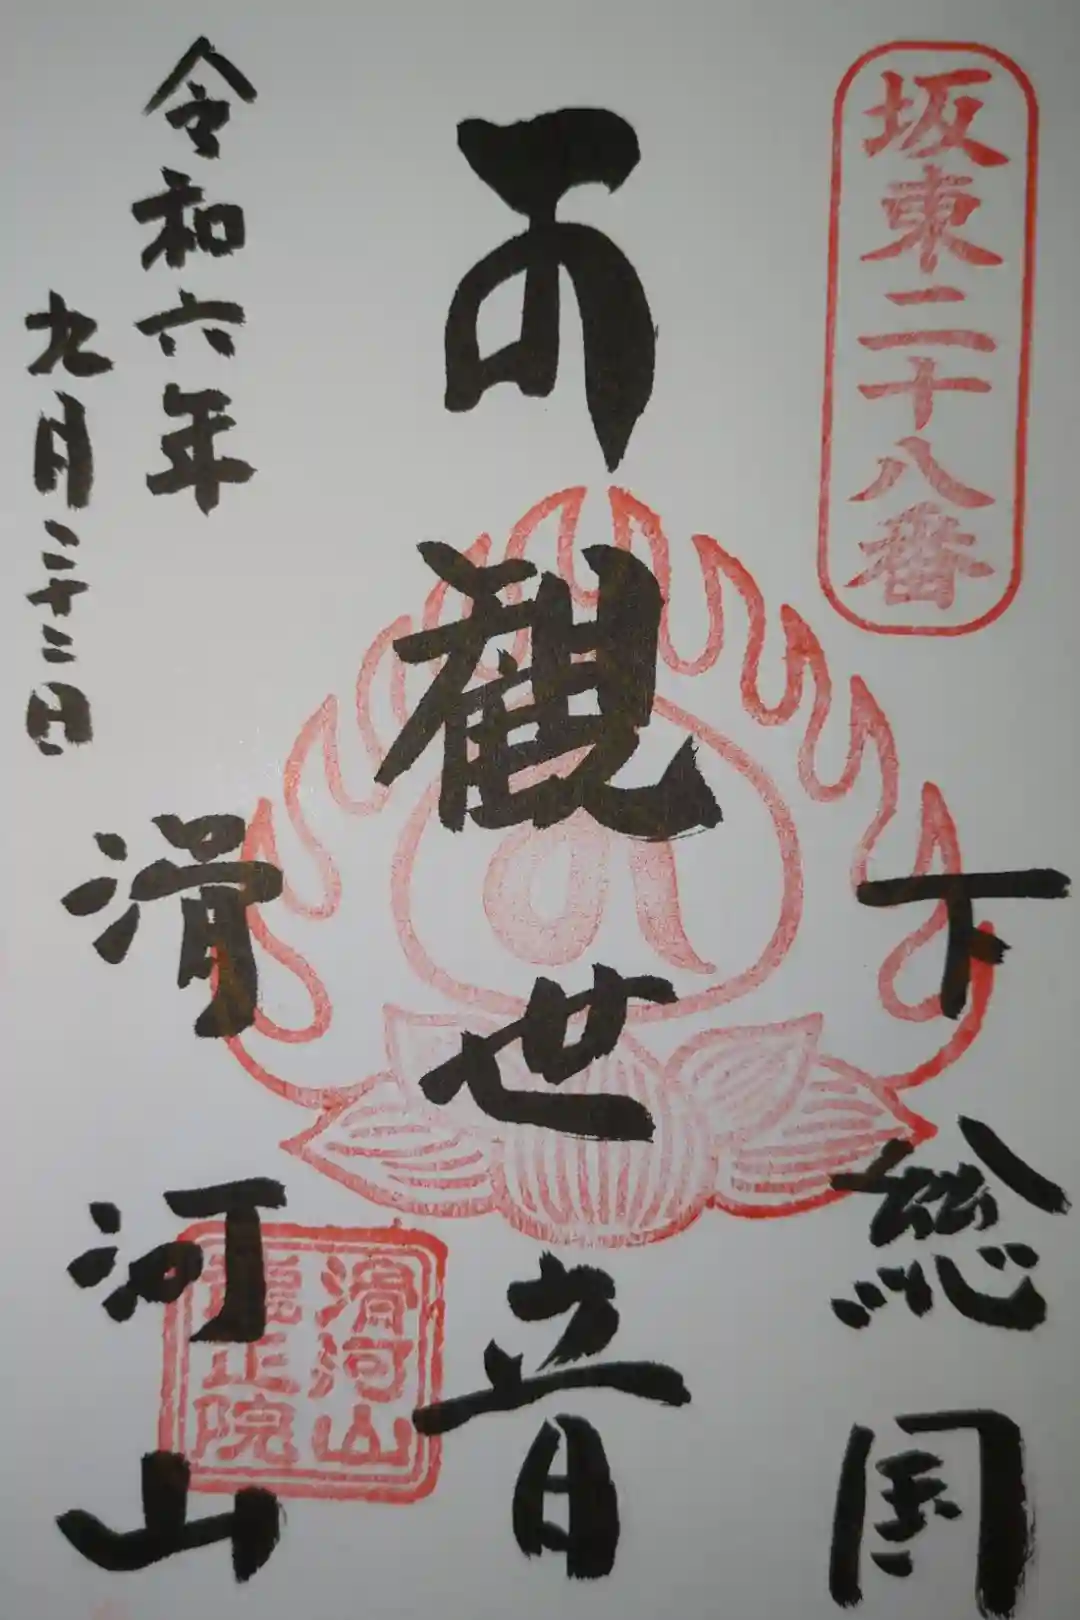 坂東二十八番
下総国
観世音
滑河山
龍正院
滑河山
令和六年
九月二十二日